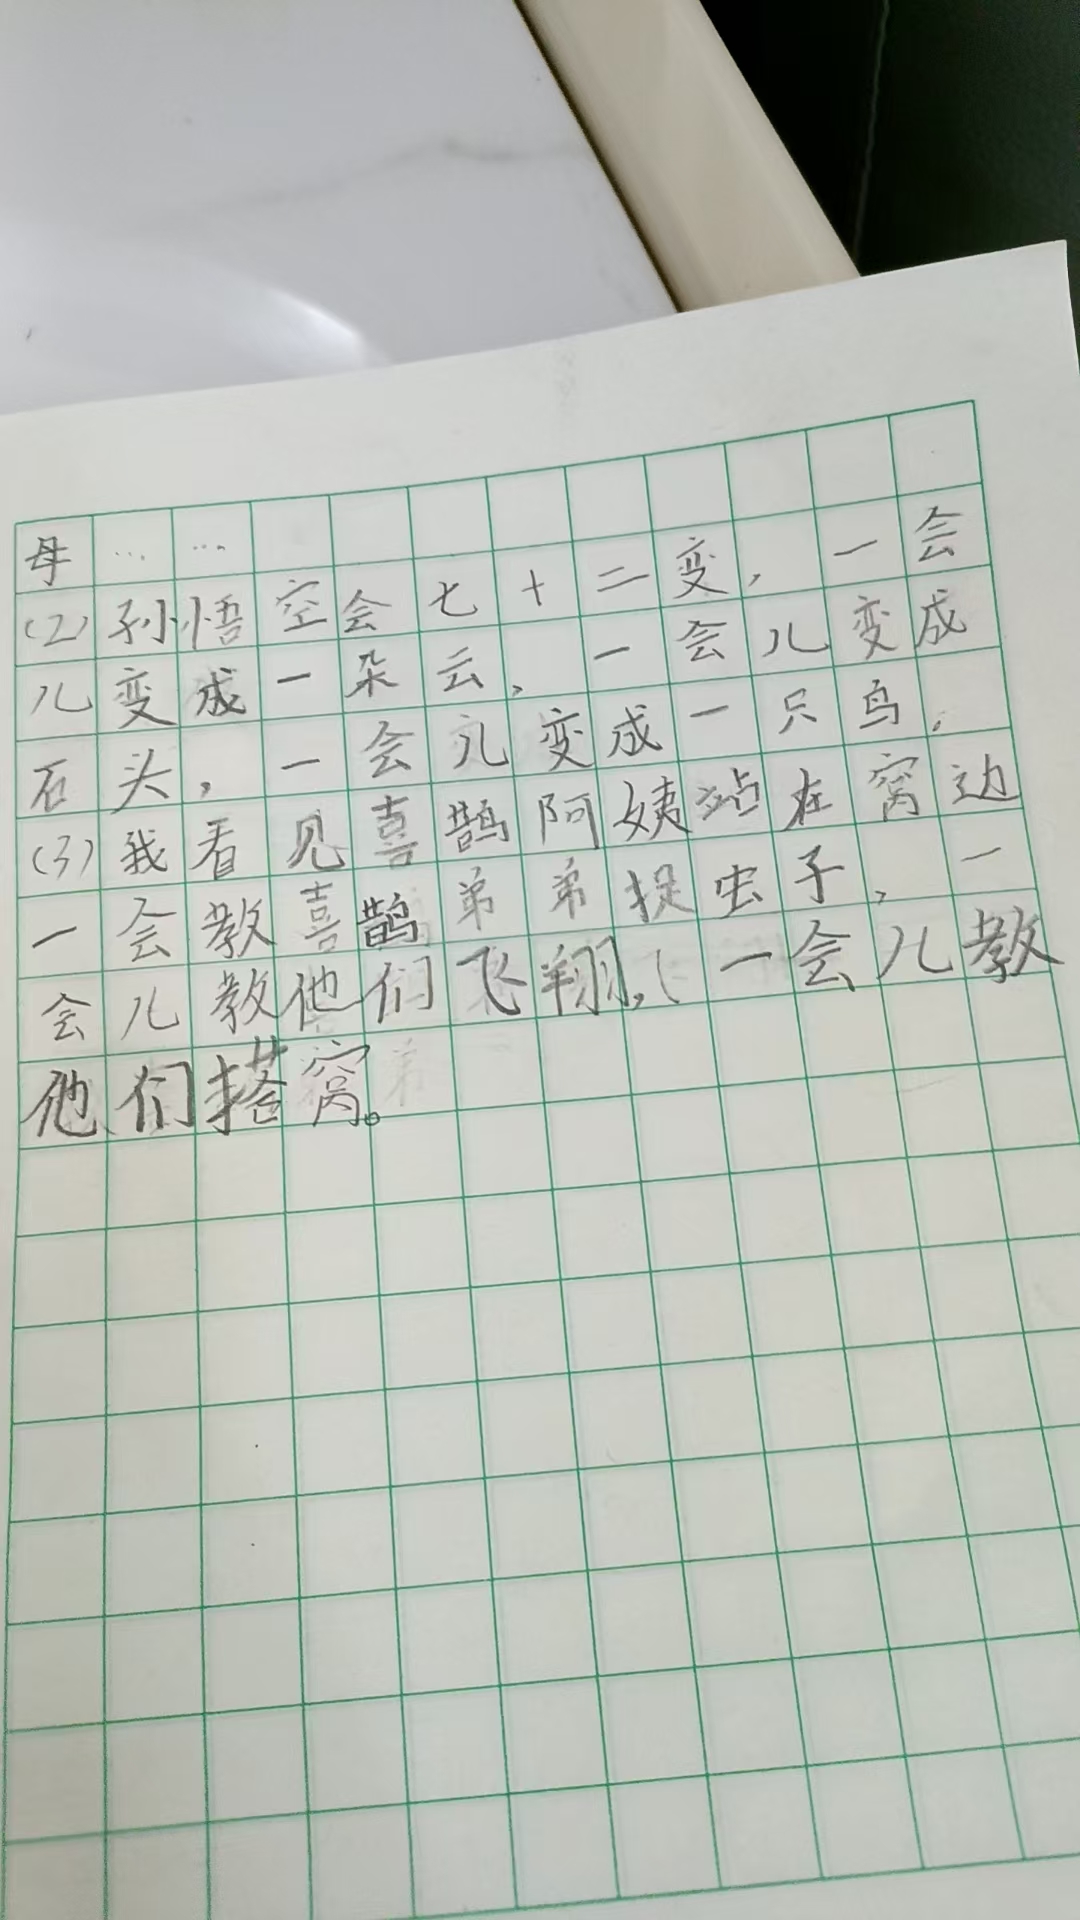 母……
(2)孙悟空会七十二变,一会
儿变成一朵云,一会儿变成
石头,一会儿变成一只鸟,
(3)我看见喜鹊阿姨站在窝边
一会教喜鹊弟弟捉虫子,一
会儿教他们飞翔,一会儿教
他们搭窝。